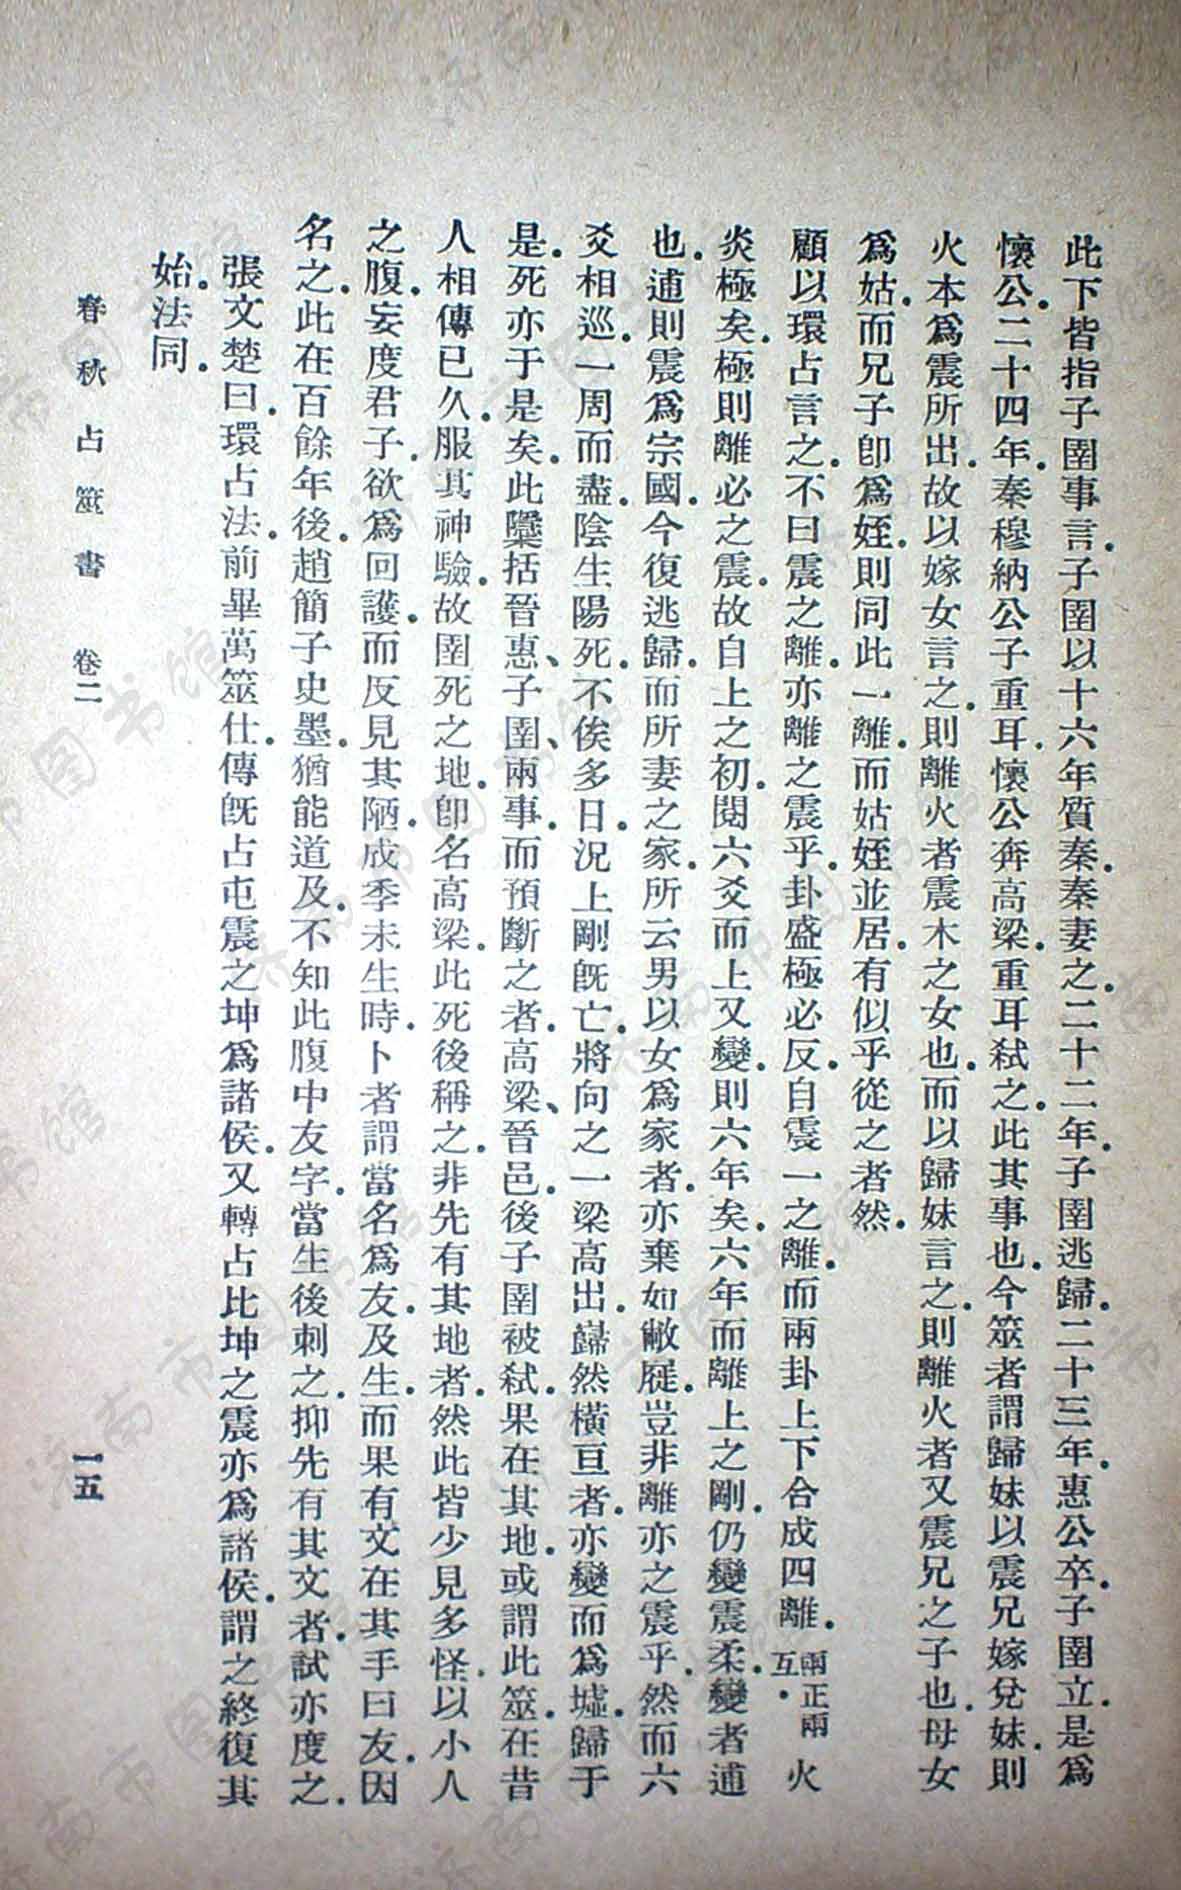 此下皆指子圉事言.子圉以十六年質秦.秦妻之.二十二年.子圉逃歸.二十三年.惠公卒.子圉立.是爲
懷公.二十四年.秦穆納公子重耳.懷公奔高梁.重耳弒之.此其事也.今筮者謂歸妹以震兄嫁兌妹.則
火本爲震所出.故以嫁女言之.則離火者震木之女也.而以歸妹言之.則離火者又震兄之子也.母女
爲姑.而兄子卽爲姪.則同此一離.而姑姪並居.有似乎從之者然.
顧以環占言之.不曰震之離.亦離之震乎.卦盛極必反.自震一之離.而兩卦上下合成四離.兩正兩互.火
炎極矣.極則離必之震.故自上之初.閱六爻而上又變.則六年矣.六年而離上之剛.仍變震柔.變者逋
也.逋則震爲宗國.今復逃歸.而所妻之家.所云男以女爲家者.亦棄如敝屣.豈非離亦之震乎.然而六
爻相巡.一周而盡.陰生陽死.不俟多日.況上剛旣亡.將向之一梁高出.巋然橫亘者.亦變而爲墟.歸于
是.死亦于是矣.此隱括晉惠、子圉、兩事.而預斷之者.高梁、晉邑.後子圉被弒.果在其地.或謂此筮.在昔
人相傳已久.服其神驗.故圉死之地.卽名高梁.此死後稱之.非先有其地者.然此皆少見多怪.以小人
之腹.妄度君子.欲爲回護.而反見其陋.成季未生時.卜者謂當名爲友.及生.而果有文在其手曰友.因
名之.此在百餘年後.趙簡子史墨.猶能道及.不知此腹中友字.當生後刺之.抑先有其文者.試亦度之.
張文楚曰.環占法.前畢萬筮仕.傳旣占屯震之坤爲諸侯.又轉占比坤之震亦爲諸侯.謂之終復其
始.法同.
春秋占筮書 卷二 一五
濟南市图书馆